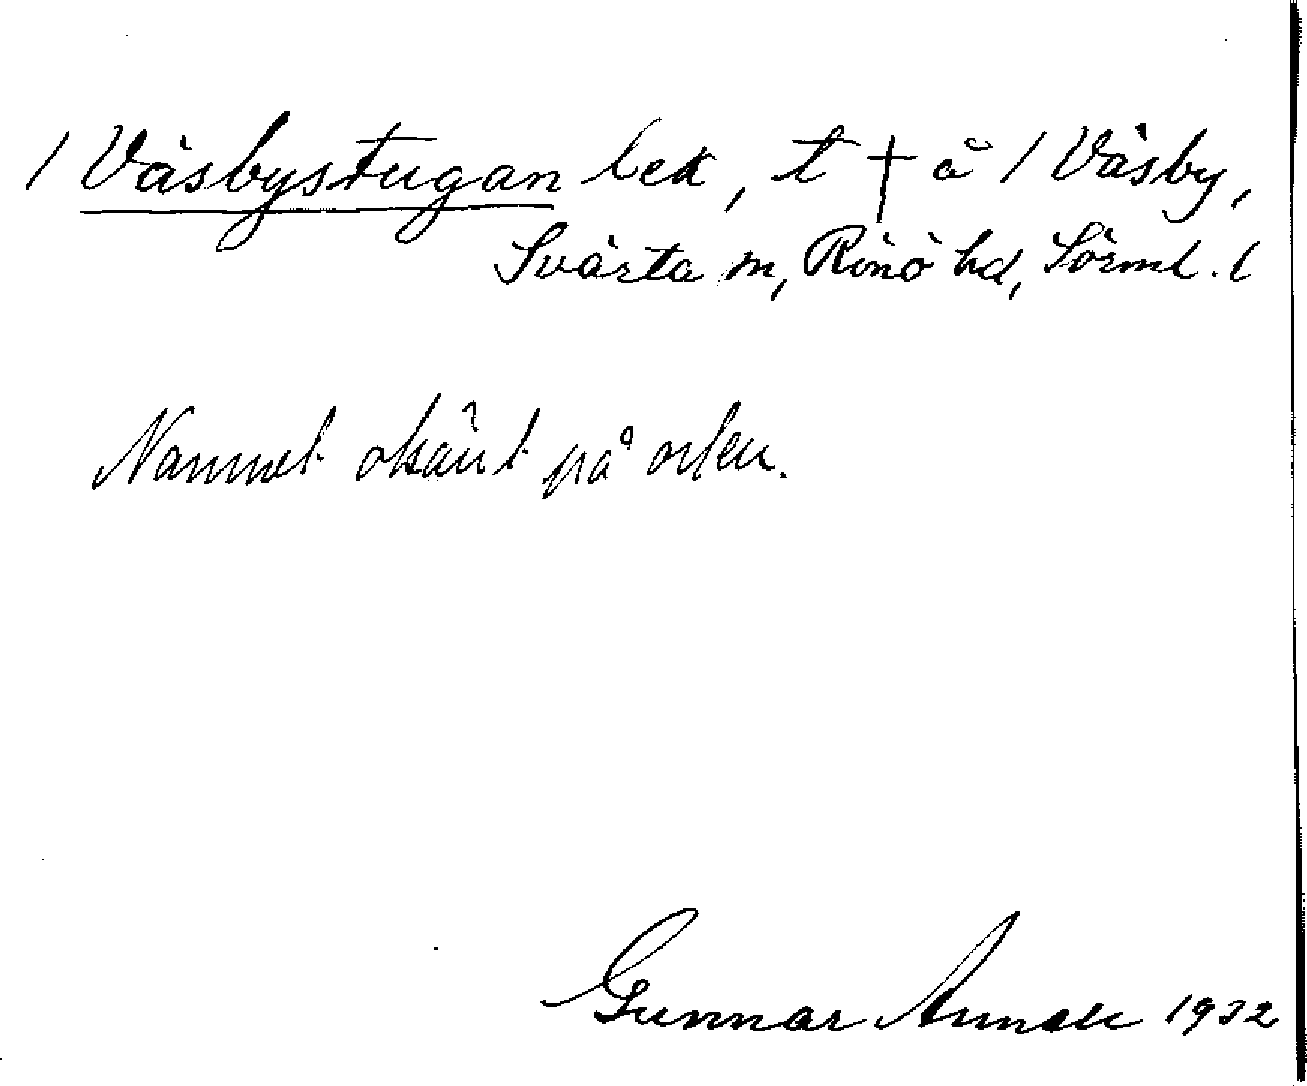 / Väsbystugan bek, t † å / Väsby,
Svärta sn, Rönö hd, Sörml. l
Namnet okänt på orten.
Gunnar 1932